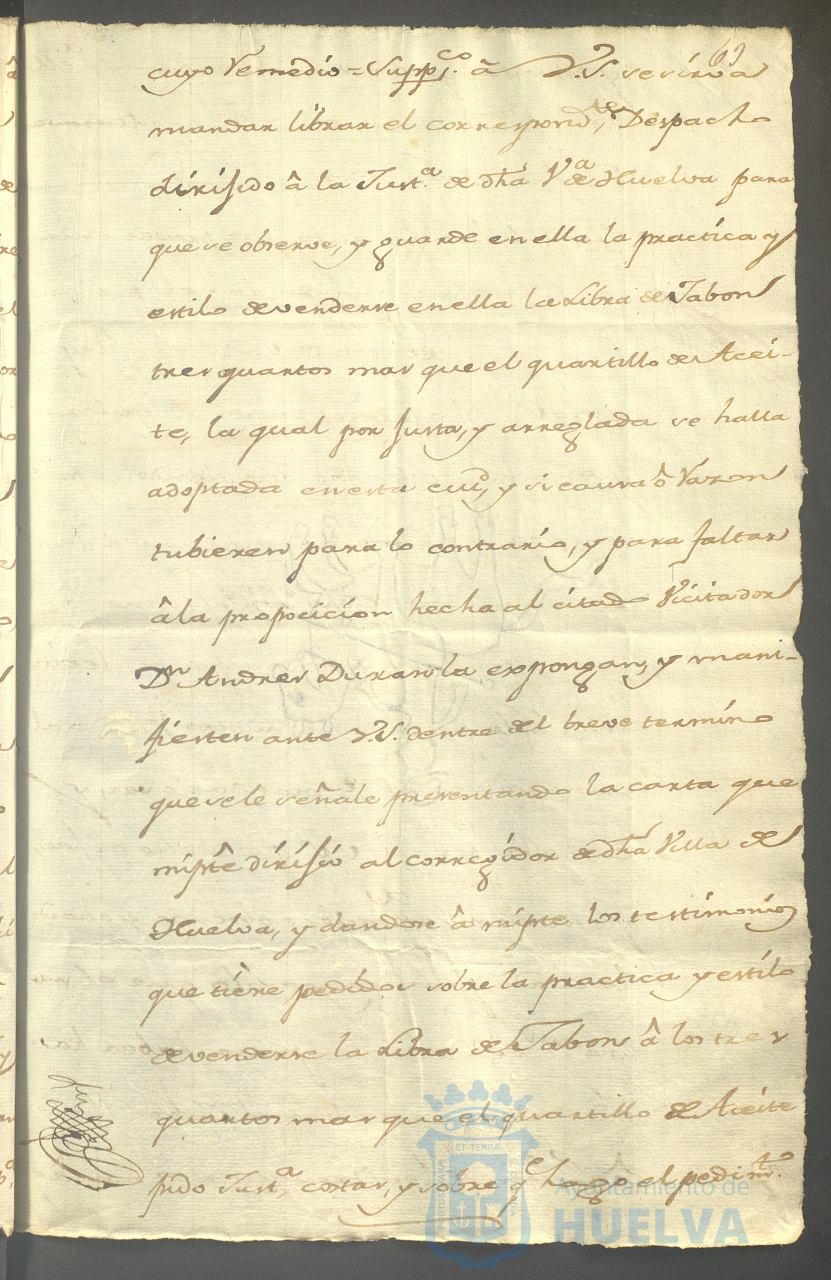 69
cuyo remedio = Supp.co â V.S. se sirva
mandar librar el correspond.te Despacho
dirijido â la Just.a de dha V.a de Huelva para
que se observe, y guarde en ella la practica y
estilo de venderse en ella la Libra de Jabon
tres quartos mas que el quartillo de Acei-
te, la qual por justa, y arreglada se halla
adoptada en esta ciu.d, y si causa ô razon
tubieren para lo contrario, y para faltar
â la proposicion hecha al citado Vicitador
Dn Andres Duran la expongan, y mani-
fiesten ante V.S. dentre del breve termino
que se le señale presentando la carta que
mi pte dirijio al corregidor de dha Villa de
Huelva, y dandose â mi pte los testimonios
que tiene pedidos sobre la practica y estilo
de venderse la Libra de Jabon â los tres
quartos mas que el quartillo de Aceite
pido Just.a, costas, y sobre q.e hago el pedim.to
Ayuntamiento de
HUELVA